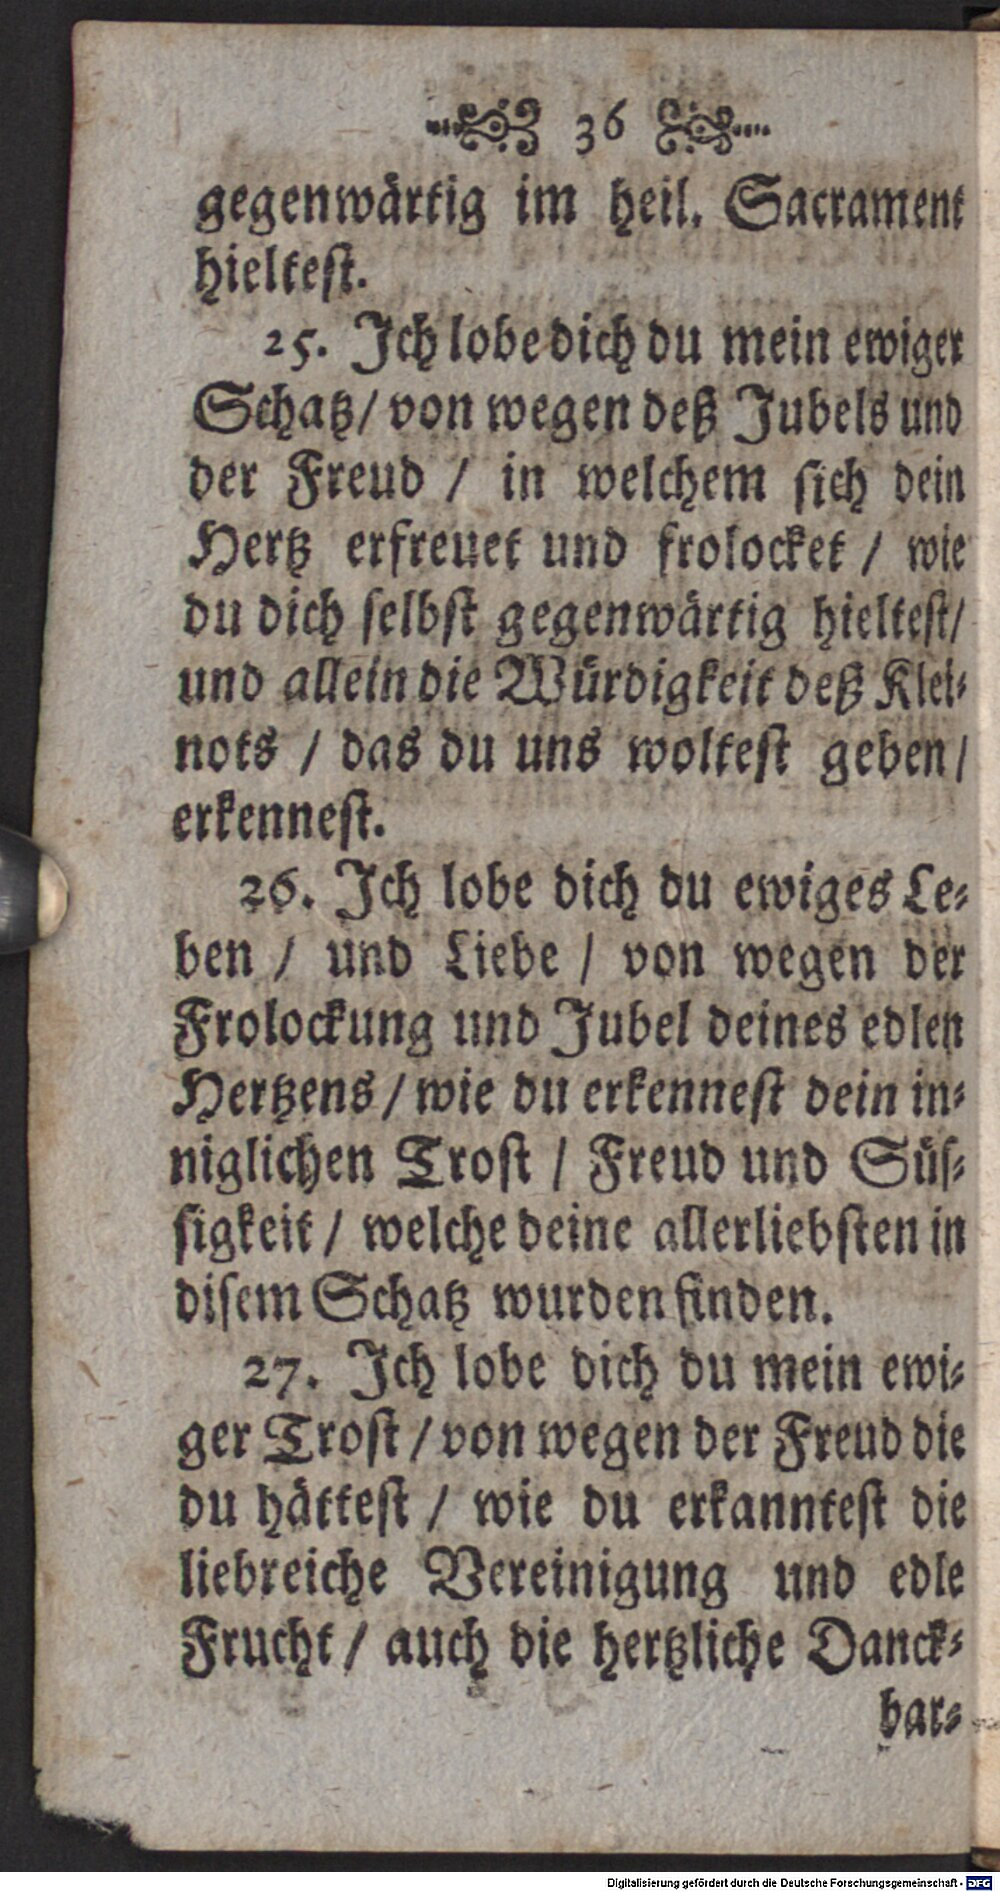 36
gegenwärtig im heil. Sacrament
hieltest.
25. Ich lobe dich du mein ewiger
Schatz/ von wegen deß Jubels und
der Freud / in welchem sich dein
Hertz erfreuet und frolocket / wie
du dich selbst gegenwärtig hieltest/
und allein die Würdigkeit deß Klei-
nots / das du uns woltest geben/
erkennest.
26. Ich lobe dich du ewiges Le-
ben / und Liebe / von wegen der
Frolockung und Jubel deines edlen
Hertzens / wie du erkennest dein in-
niglichen Trost / Freud und Süs-
sigkeit / welche deine allerliebsten in
disem Schatz wurden finden.
27. Ich lobe dich du mein ewi-
ger Trost / von wegen der Freud die
du hättest / wie du erkanntest die
liebreiche Vereinigung und edle
Frucht / auch die hertzliche Danck-
bar-
Digitalisierung gefördert durch die Deutsche Forschungsgemeinschaft - DFG